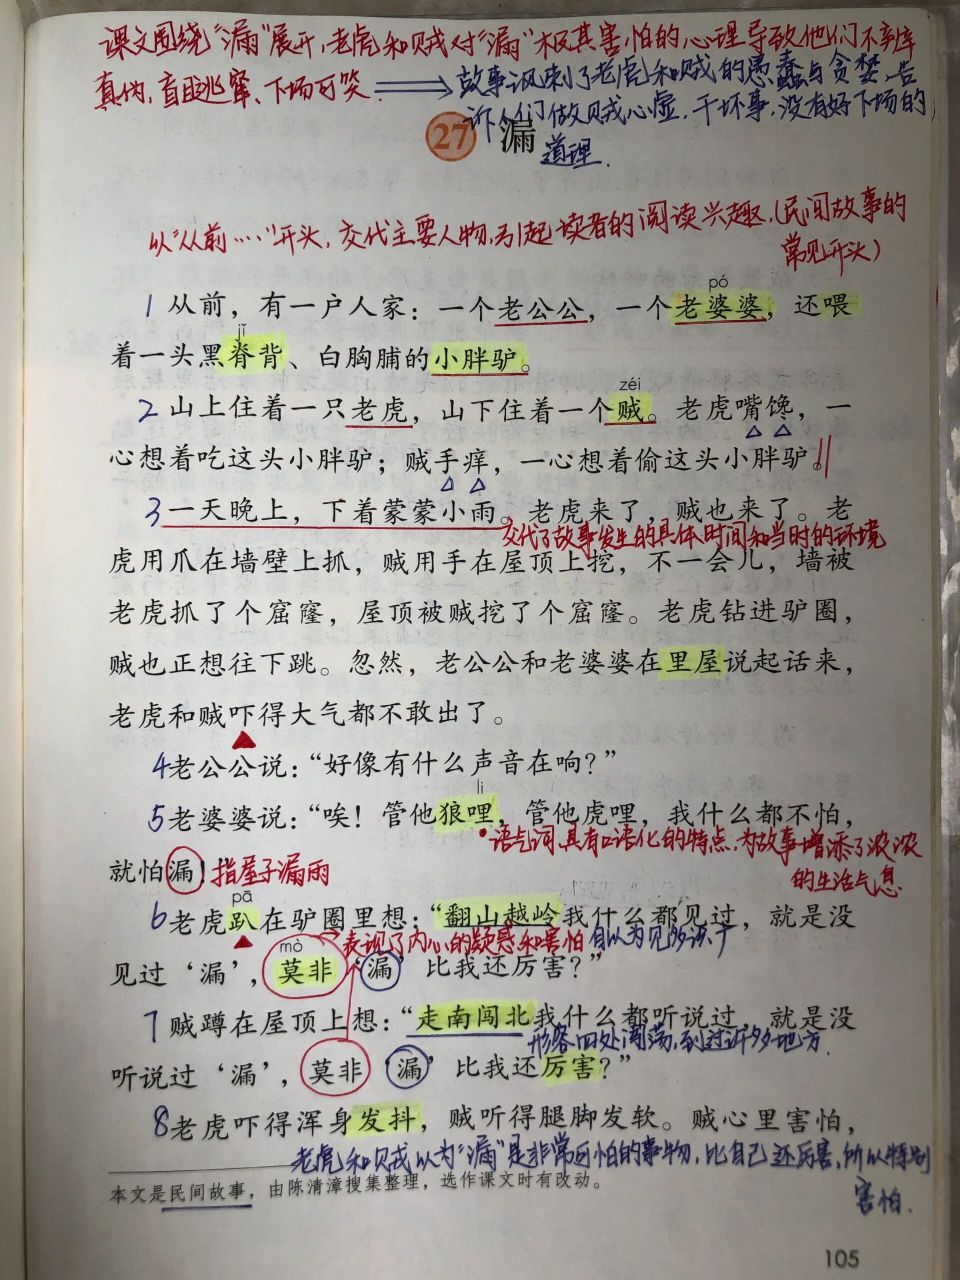 课文围绕“漏”展开,老虎和贼对“漏”极其害怕的心理导致他们不辨
真伪,盲目逃窜、下场可笑
故事讽刺了老虎和贼的愚蠢与贪婪,告
诉人们做贼心虚,干坏事,没有好下场的
道理.
27 漏
以“从前……”开头,交代主要人物,引起读者的阅读兴趣,(民间故事的
常见开头)
pó
1 从前，有一户人家：一个老公公，一个老婆婆，还喂
jǐ
着一头黑脊背、白胸脯的小胖驴。
zéi
2 山上住着一只老虎，山下住着一个贼。老虎嘴馋，一
心想着吃这头小胖驴；贼手痒，一心想着偷这头小胖驴。
3 一天晚上，下着蒙蒙小雨。老虎来了，贼也来了。老
交代了故事发生的具体时间和当时的环境
虎用爪在墙壁上抓，贼用手在屋顶上挖，不一会儿，墙被
老虎抓了个窟窿，屋顶被贼挖了个窟窿。老虎钻进驴圈，
贼也正想往下跳。忽然，老公公和老婆婆在里屋说起话来，
老虎和贼吓得大气都不敢出了。
4 老公公说：“好像有什么声音在响？”
li
5 老婆婆说：“唉！管他狼哩，管他虎哩，我什么都不怕，
语气词,具有口语化的特点,为故事增添了浓浓
的生活气息
就怕漏！”
指屋子漏雨
pā
6 老虎趴在驴圈里想：“翻山越岭我什么都见过，就是没
表现了内心的疑惑和害怕
自以为见多识广
mò
见过‘漏’，莫非‘漏’比我还厉害？”
7 贼蹲在屋顶上想：“走南闯北我什么都听说过，就是没
形容四处闯荡,到过许多地方.
听说过‘漏’，莫非‘漏’比我还厉害？”
8 老虎吓得浑身发抖，贼听得腿脚发软。贼心里害怕，
老虎和贼以为“漏”是非常可怕的事物,比自己还厉害,所以特别
害怕.
本文是民间故事，由陈清漳搜集整理，选作课文时有改动。
105